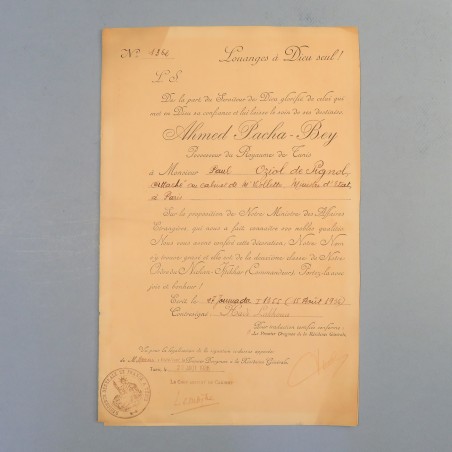 No 1354 Louanges à Dieu seul!
L S
De la part du Serviteur de Dieu glorifié de celui qui
met en Dieu sa confiance et lui laisse le soin de sa destinée
Ahmed Pacha-Bey
Possesseur du Royaume de Tunis
à Monsieur Paul Oziol de Pignol,
attaché au cabinet de M. Viollette Ministre d'Etat,
à Paris
Sur la proposition de Notre Ministre des Affaires
Etrangères qui nous a fait connaître vos nobles qualités
Nous vous avons conféré cette décoration, Notre Nom
s'y trouve gravé et elle est de la deuxième classe de Notre
Ordre du Nichan-Iftikhar (Commandeur). Portez-la avec
joie et bonheur!
Ecrit le 1355 (Août 1936)
Contresigné
Pour traduction certifiée conforme:
Le Premier Drogman de la Résidence Générale
Vu pour la légalisation de la signature ci-dessus apposée
de M. Premier Drogman à la Résidence Générale
Tunis, le